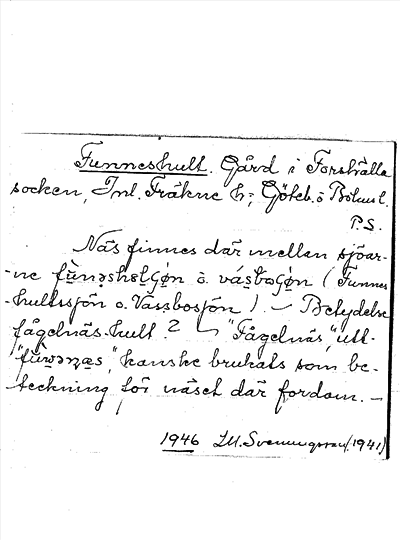 Funneshult. Gård i Forshälla
socken, Inl. Fräkne h., Göteb. o Bohusl.
P.S.
Näs finnes där mellan sjöar-
-ne fùnəshəlGøn o. vásboGøn (Funnes-
-hultssjön o. Vassbosjön). – Betydelse
fågelnäs-hult? – "Fågelnäs", utt.
"fùwənæs", kanske brukats som be-
teckning för näset där fordom. –
1946 J.M. Svenungsson (1941)